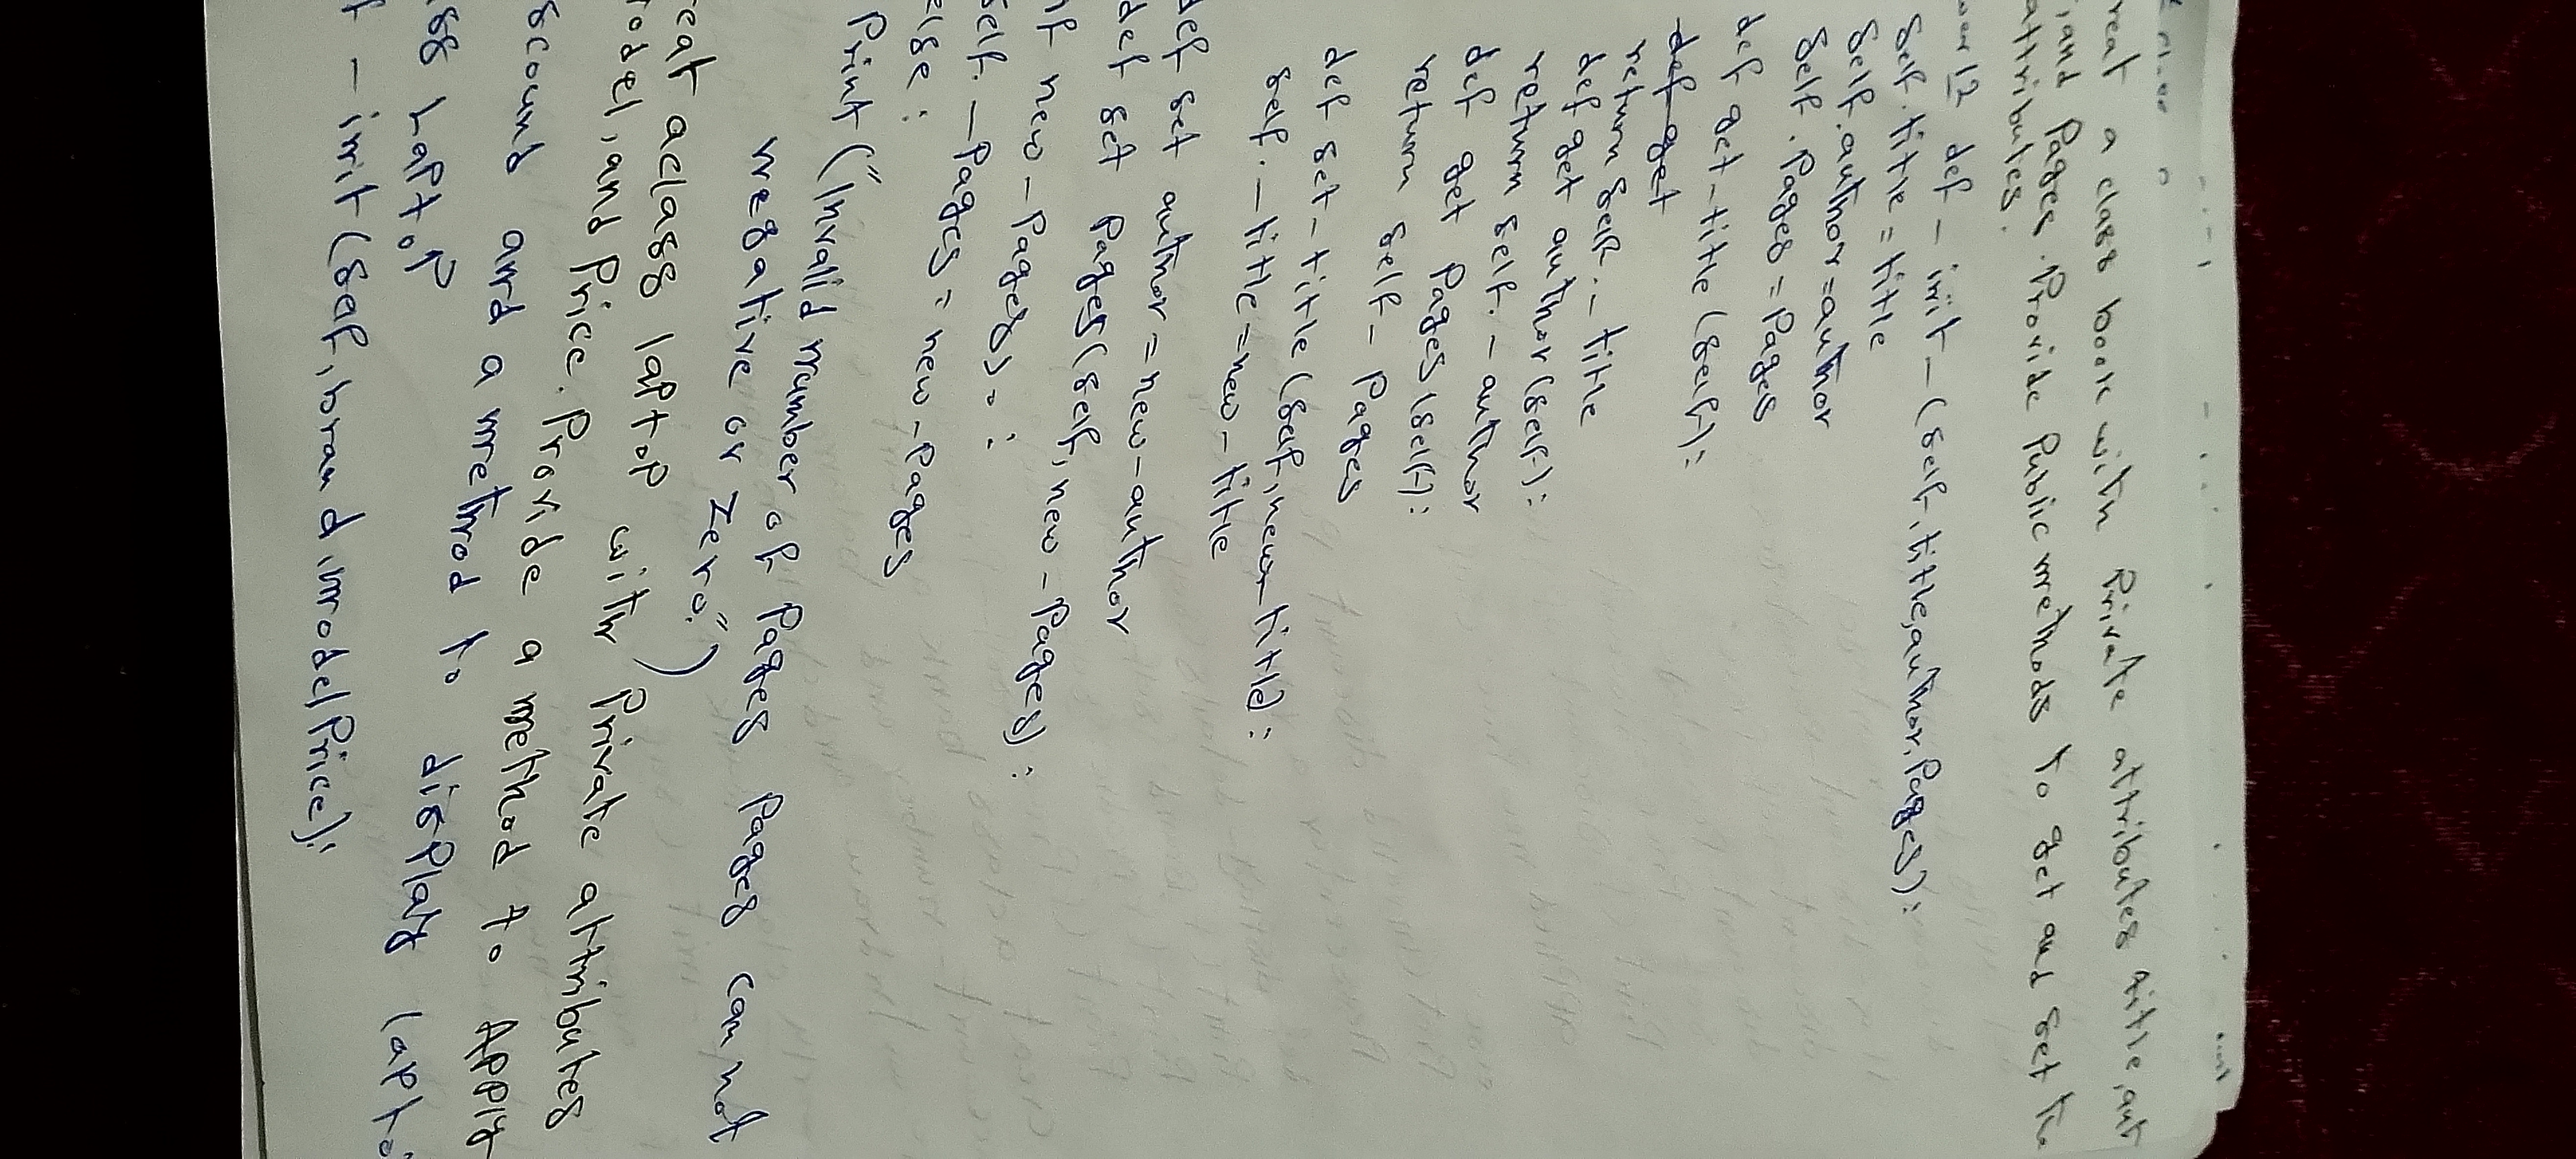 reat a class book with Private attributes title, aut
, and Pages. Provide Public methods to get and set the
attributes.
def - init - (self, title, author, Pages):
self. title = title
self. author = author
self. Pages = Pages
def get - title (self):
def get
return self. - title
def get author (self):
return self. - author
def get Pages (self):
return self - Pages
def set - title (self, new - title):
self. - title = new - title
def set author = new - author
def set Pages (self, new - Pages):
new - Pages > 0 :
self. - Pages = new - Pages
else :
Print ("Invalid number of Pages Pages can not
negative or zero.")
eat a class laptop with Private attributes
model, and Price. Provide a method to Apply
scound and a method to display lapto
ss Laptop
f - init (self, brand, model Price):